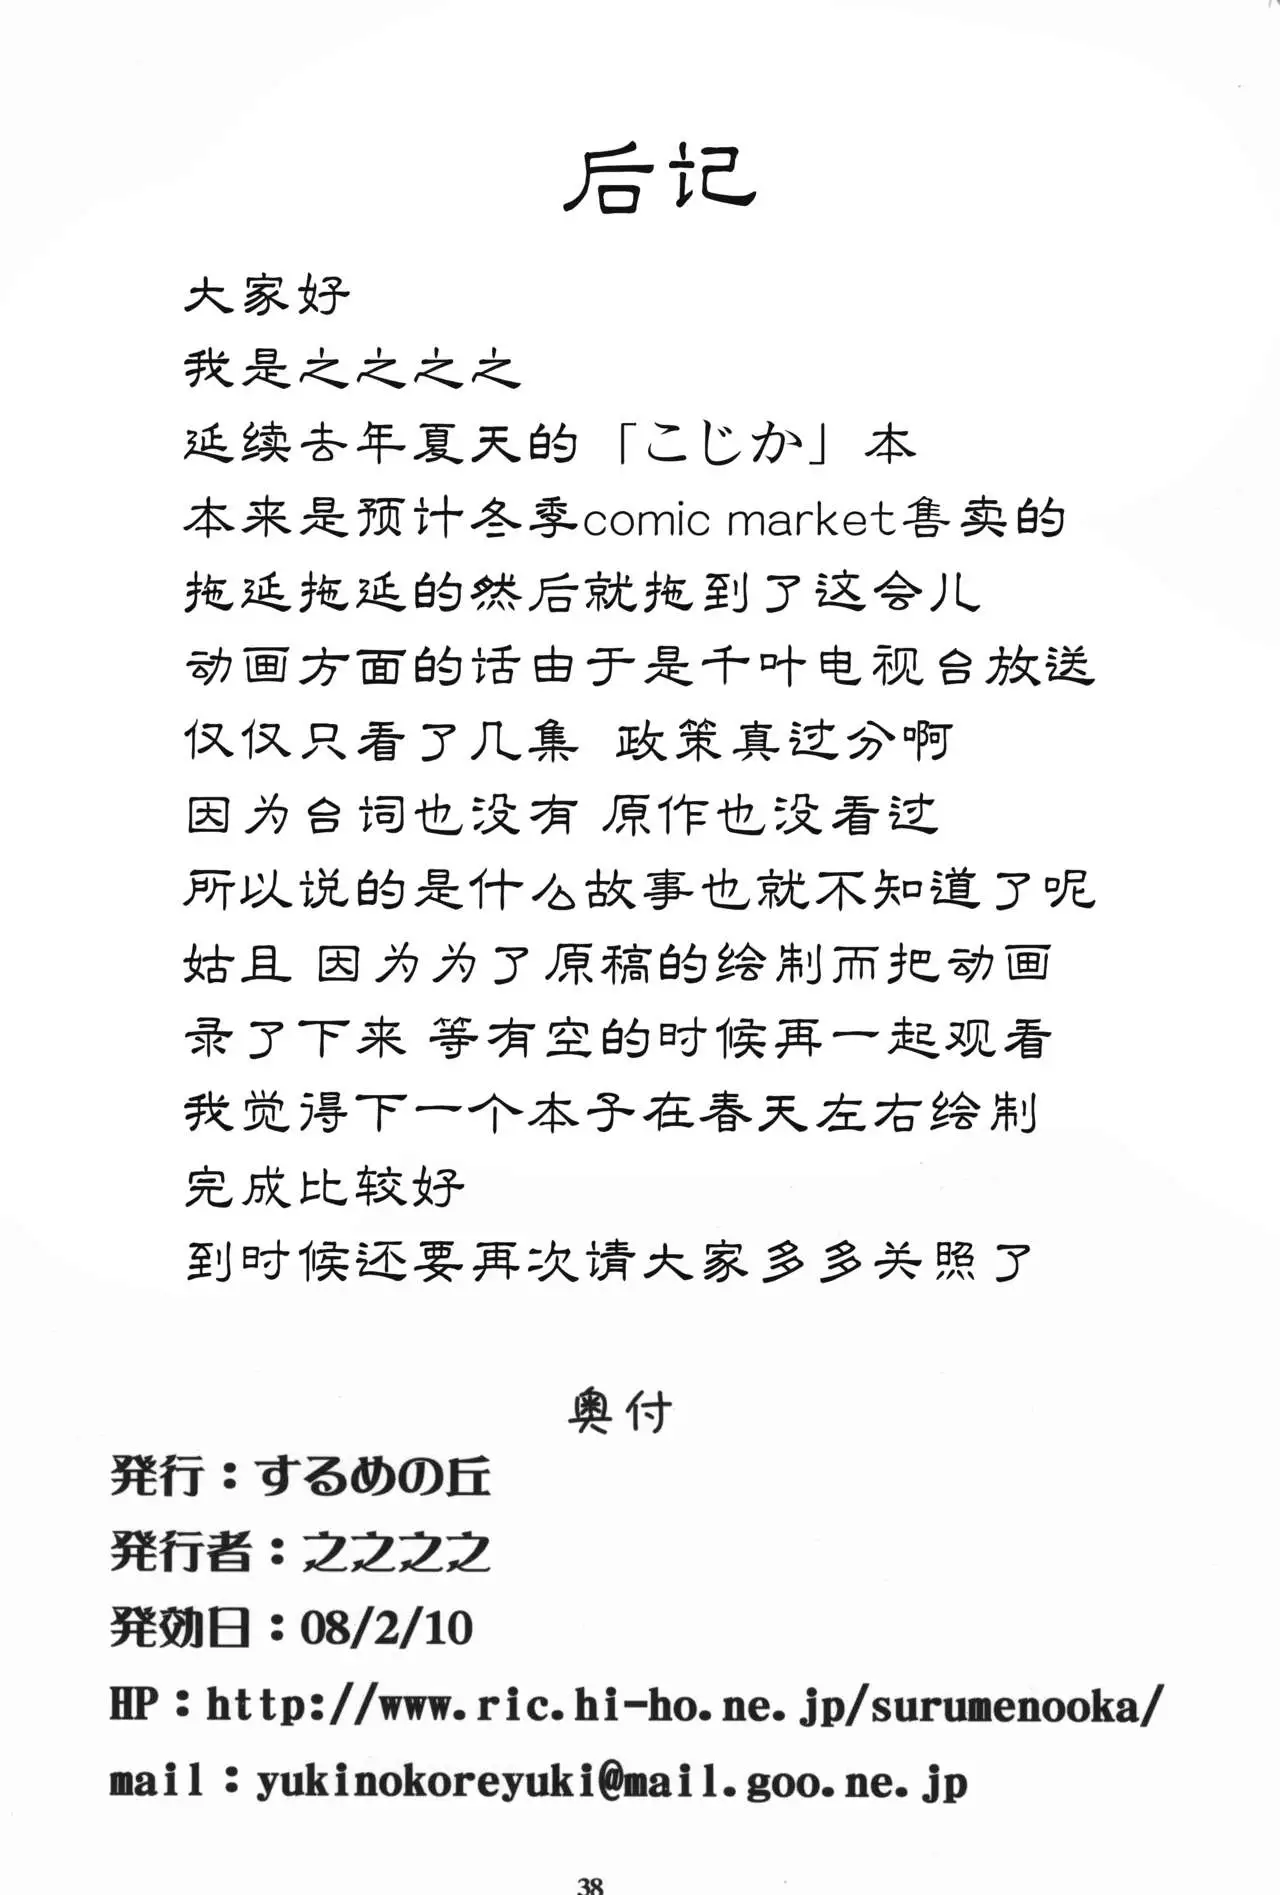 后记
大家好
我是之之之之
延续去年夏天的「こじか」本
本来是预计冬季comic market售卖的
拖延拖延的然后就拖到了这会儿
动画方面的话由于是千叶电视台放送
仅仅只看了几集 政策真过分啊
因为台词也没有 原作也没看过
所以说的是什么故事也就不知道了呢
姑且 因为为了原稿的绘制而把动画
录了下来 等有空的时候再一起观看
我觉得下一个本子在春天左右绘制
完成比较好
到时候还要再次请大家多多关照了
奥付
発行：するめの丘
発行者：之之之之
発効日：08/2/10
HP：http://www.ric.hi-ho.ne.jp/surumenooka/
mail：yukinokoreyuki@mail.goo.ne.jp
38